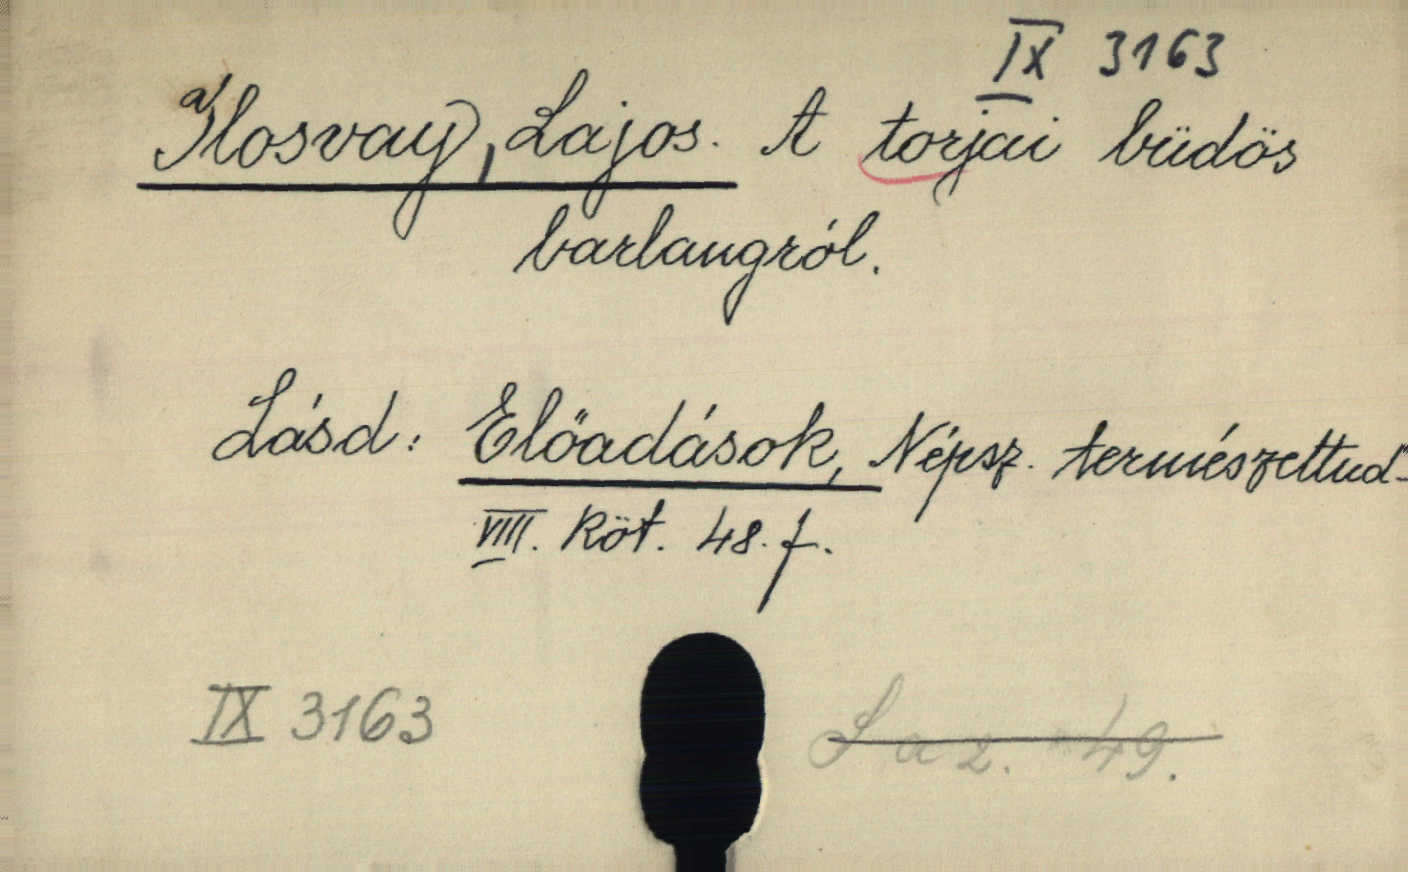 IX 3163
a) Ilosvay, Lajos. A torjai büdös
barlangról.
Lásd: Előadások, Népsz. természettud-
VIII. Köt. 48. f.
IX 3163
L a z. 49.